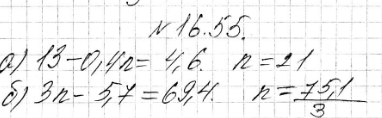 №16.55.
а) 13-0,4n= 4,6. n=21
б) 3n- 5,7 =69,4. n= 75,1/3